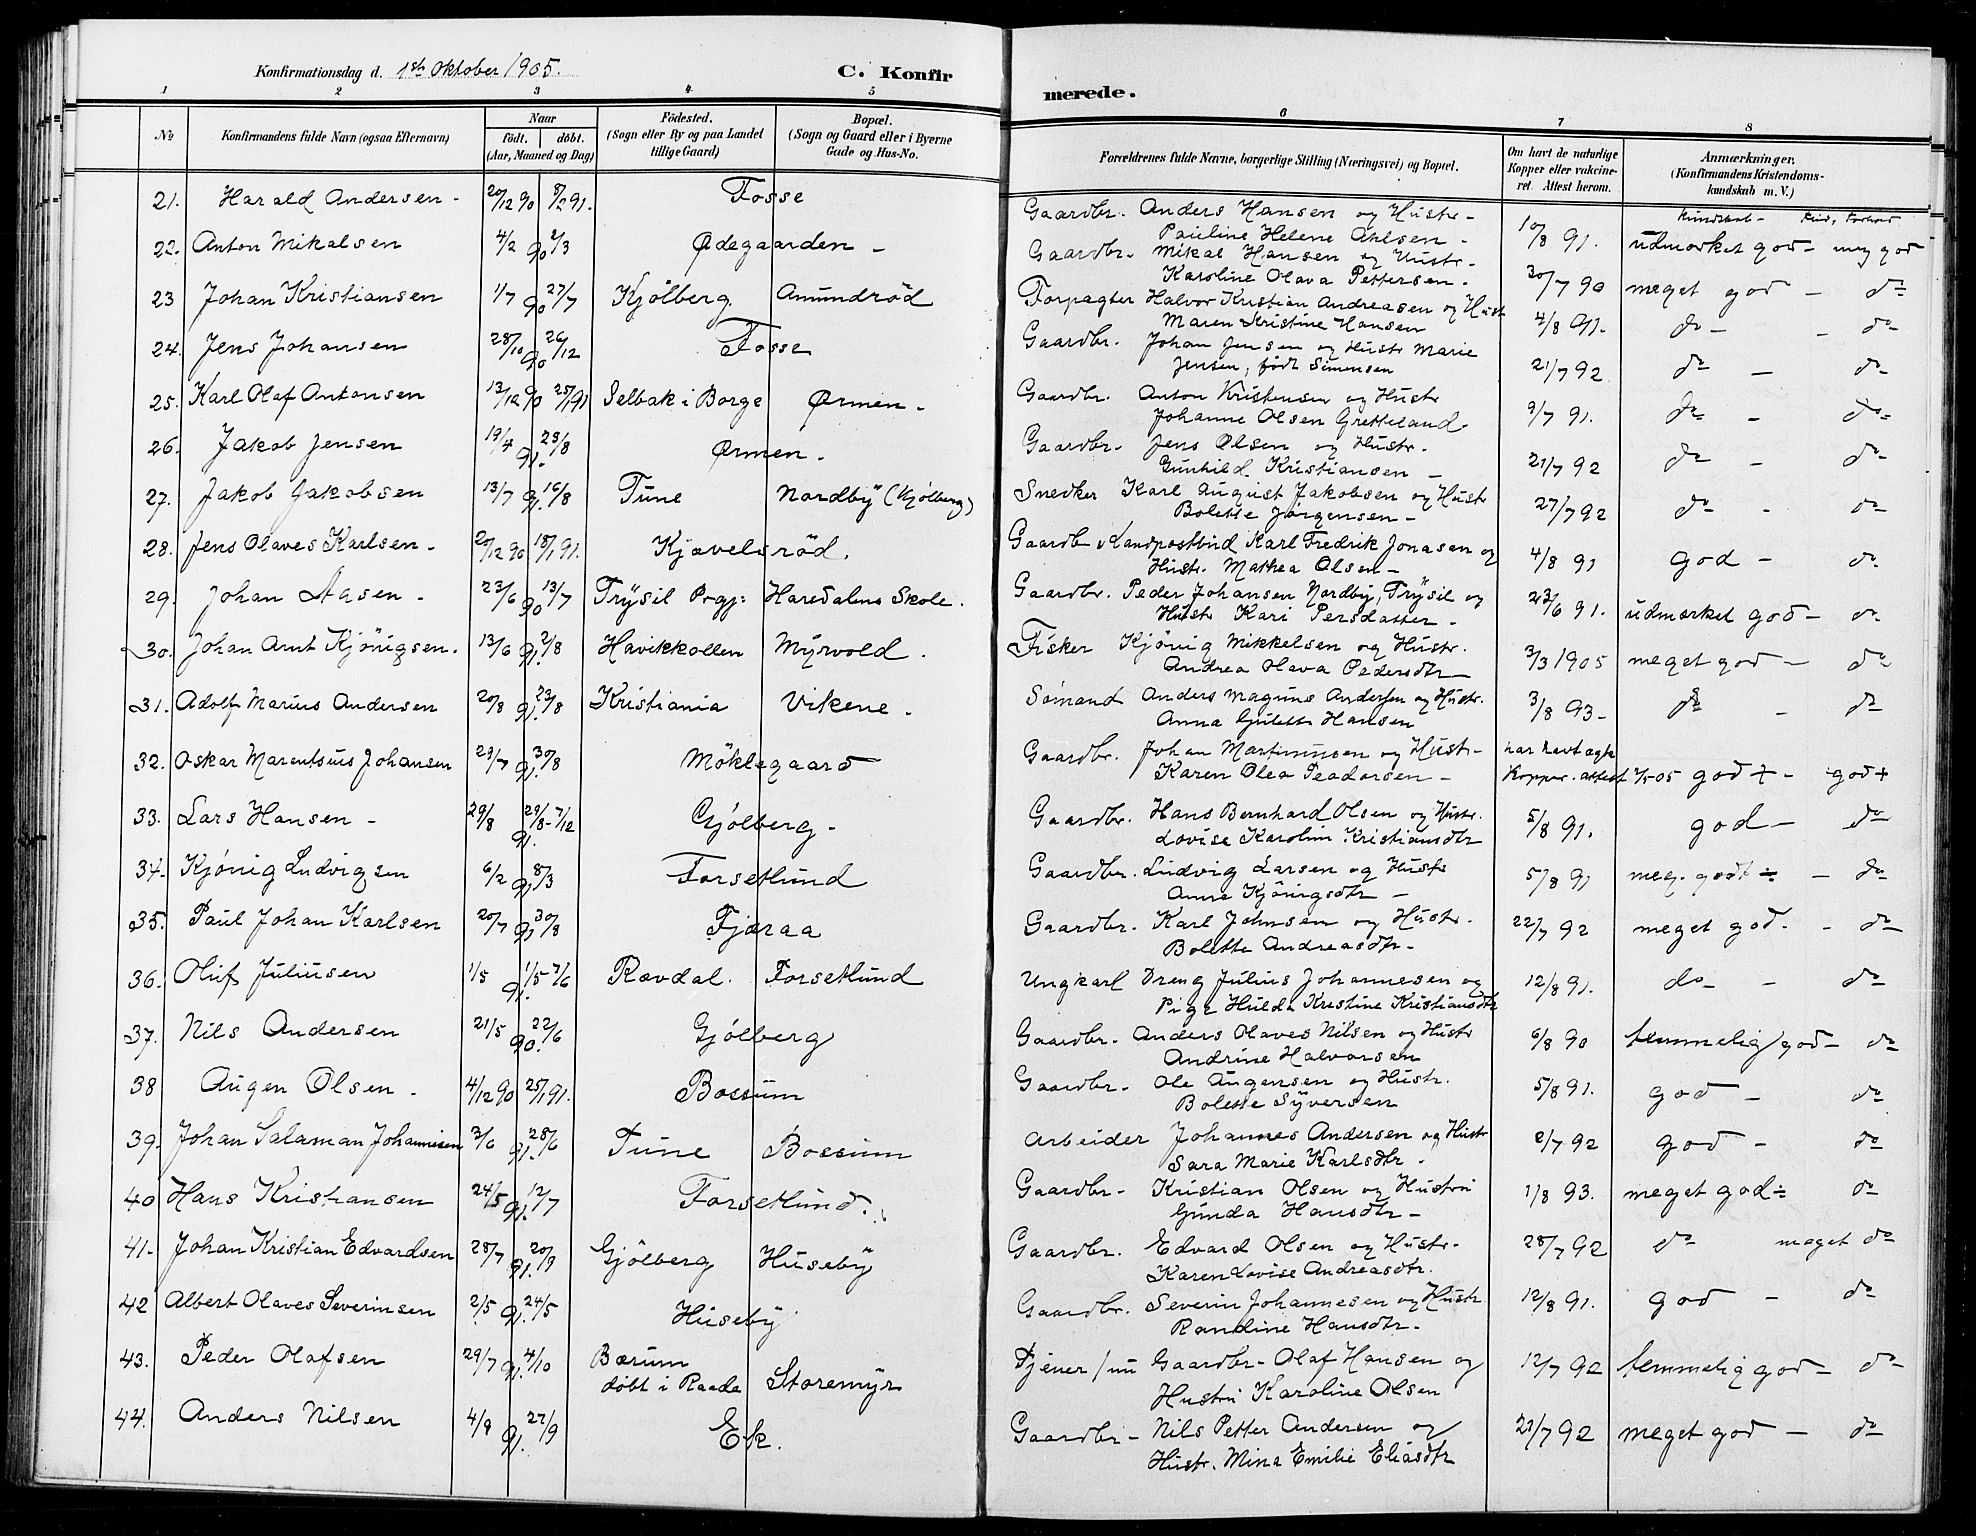 Konfirmationsdag d. 1ste Oktober 1905. C. Konfirmerede.
1 2 3 4 5 6 7 8
No Konfirmandens fulde Navn (ogsaa Efternavn) Naar født. døbt. (Aar, Maaned og Dag) Fødested. (Sogn eller By og paa Landet tillige Gaard) Bopæl. (Sogn og Gaard eller i Byerne Gade og Hus-No. Forældrenes fulde Navne, borgerlige Stilling (Næringsvei) og Bopæl. Om havt de naturlige Kopper eller vakcineret. Attest herom. Anmærkninger. (Konfirmandens Kristendomskundskab m. V.)
Kundskab - Flid, Forhold
21. Harald Andersen - 20/12 90 8/2 91. Fosse Gaardbr. Anders Hansen og Hustr-
Pauline Helene Ahlsen - 10/8 91. udmærket god - meg god
22. Anton Mikalsen 4/2 90 2/3 Ødegaarden - Gaardbr. Mikal Hansen og Hustr-
Karoline Olava Pettersen - 30/7 90 meget god - do
23 Johan Kristiansen 1/7 90 27/7 Kjølberg Amundrød Forpagter Halvor Kristian Andreasen og Hust
Maren Kristine Hansen 4/8 91. do - - do
24. Jens Johansen 28/10 90 26/12 Fosse Gaardbr. Johan Jensen og Hustr Marie
Jensen, født Simensen 21/7 92 do - do
25. Karl Olaf Antonsen 13/12 90 25/1 91 Selbak i Borge Ørmen - Gaardbr. Anton Kristensen og Hustr
Johanne Olsen Gretteland 9/7 91. do - do
26. Jakob Jensen 19/4 91. 23/8 Ørmen. Gaardbr. Jens Olsen og Hustr.
Gunhild Kristiansen - 21/7 92 do - do
27. Jakob Jakobsen 13/7 91. 16/8 Tune Nordby (Kjølberg) Snedker Karl August Jakobsen og Hustr
Bolette Jørgensen - 27/7 92 do - do
28. Jens Olaves Karlsen - 20/12 90 18/1 91. Kjævelsrød. Gaardb Landpostbud Karl Fredrik Jonasen og
Hustr. Mathea Olsen - 4/8 91 god - do
29. Johan Aasen - 23/6 90 13/7 Trysil Prgj: Haredalens Skole. Gaardbr. Peder Johansen Nordby, Trysil og
Hustr Kari Persdatter - 23/6 91. udmærket god - do
30. Johan Arnt Kjønigsen. 13/6 91. 2/8 Havikkollen Myrvold. Fisker Kjønig Mikkelsen og Hustr.
Andrea Olava Pedersdtr 3/3 1905 meget god - do
31. Adolf Marius Andersen 20/8 91. 23/8 Kristiania Vikene. Sømand Anders Magnus Andersen og Hustr.
Anna Gulette Hansen 3/8 93 - do - do
32. Oskar Marentsius Johansen 29/7 91. 30/8 Møklegaard Gaardbr. Johan Martinusen og Hustr-
Karen Olea Peadersen - har havt ægte Kopper. attest 7/5 05 god + - god +
33. Lars Hansen - 29/8 91. 29/8 - 7/12 Gjølberg - Gaardbr. Hans Bernhard Olsen og Hustr.
Lovise Karolin Kristiansdtr 5/8 91. god - do
34. Kjønig Ludvigsen 6/2 91 8/3 Forsetlund Gaardbr. Ludvig Larsen og Hustr
Anne Kjønigsdtr - 5/8 91 meg. godt ÷ - do
35. Paul Johan Karlsen 20/7 91 30/8 Fjæraa Gaardbr. Karl Johnsen og Hustr.
Bolette Andreasdtr. 22/7 92 meget god. - do
36. Oluf Juliusen 1/5 91. 1/5 7/6 Rævdal. Forsetlund Ungkarl Dreng Julius Johannesen og
Pige Hulda Kristine Kristiansdtr 12/8 91. do - do
37. Nils Andersen 21/5 90. 22/6 Gjølberg Gaardbr. Anders Olaves Nilsen og Hustr
Andrine Halvorsen 6/8 90 temmelig god - do
38 Augen Olsen - 4/12 90 25/1 91. Bossum Gaardbr - Ole Augensen og Hustr.
Bolette Syversen 5/8 91. god - do
39. Johan Salaman Johannesen 3/6 91. 28/6 Tune Bossum Arbeider Johannes Andersen og Hustr
Sara Marie Karlsdtr. 2/7 92 god - do
40 Hans Kristiansen 24/5 91. 12/7 Forsetlund. Gaardbr - Kristian Olsen og Hustru
Gunda Hansdtr - 1/8 93. meget god ÷ do
41. Johan Kristian Edvardsen 28/7 91. 20/9 Gjølberg Huseby Gaardbr. Edvard Olsen og Hustr -
Karen Lovise Andreasdtr. 28/7 92 do meget do
42 Albert Olaves Severinsen 2/5 91. 24/5 Huseby Gaardbr. Severin Johannesen og Hustr
Randine Hansdtr. 12/8 91. god - do
43. Peder Olafsen 29/7 91. 4/10 Bærum døbt i Raade Storemyr Tjener / nu Gaardbr - Olaf Hansen og
Hustru Karoline Olsen 12/7 92 temmelig god - do
44. Anders Nilsen 4/9 91. 27/9 Ek. Gaardbr - Nils Petter Andersen og
Hustr. Mina Emilie Eliasdtr 21/7 92 meget god - do